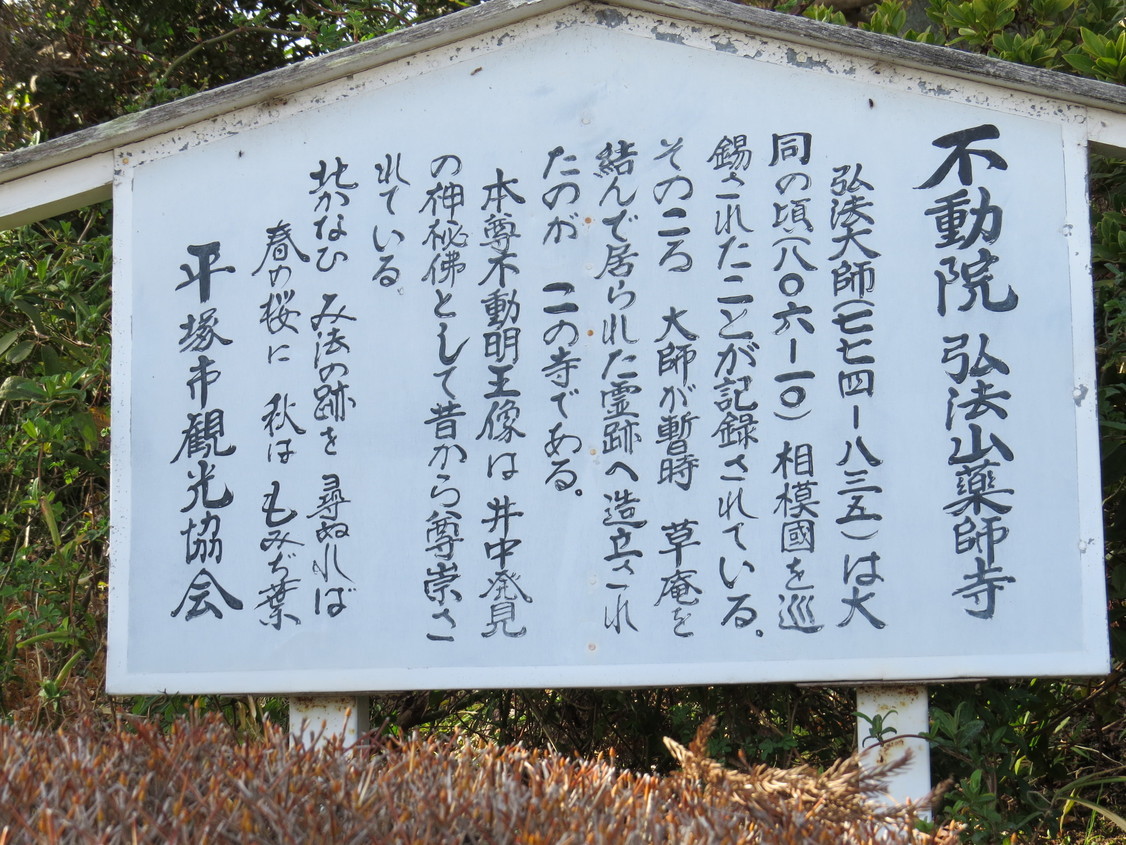 不動院 弘法山薬師寺
弘法大師(七七四ー八三五)は大
同の頃(八〇六ー一〇)相模國を巡
錫されたことが記録されている。
そのころ 大師が暫時 草庵を
結んで居られた霊跡へ造立され
たのが この寺である。
本尊不動明王像は井中発見
の神秘佛として昔から尊崇さ
れている
かなひ み法の跡を 尋ぬれば
春の桜に 秋は もみぢ葉
平塚市観光協会